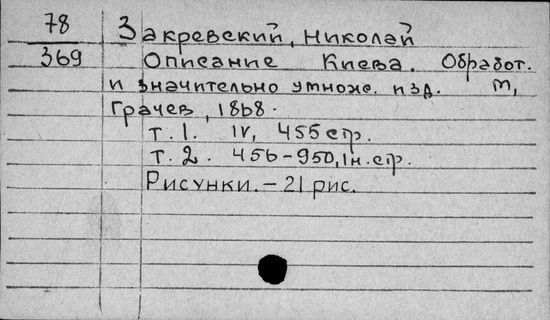 78 Закревский, Николай
369 Описание Киева. Обработ.
и значительно умнож. изд. М,
Грачев, 1868.
т. 1. IV, 455 стр.
т. 2. 456-950, 1 н. стр.
Рисунки. - 21 рис.